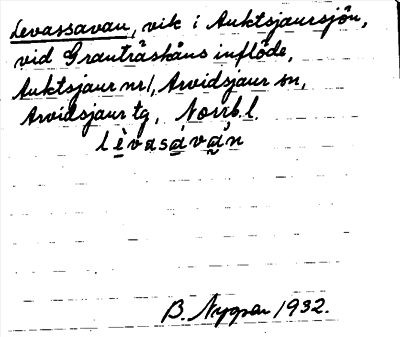 Levassavan, vik i Auktsjaursjön,
vid Granträskåns inflöde,
Auktsjaur nr 1, Arvidsjaur sn,
Arvidsjaur tg, Norrb. l.
lèvasává̰n
B. Nygren 1932.